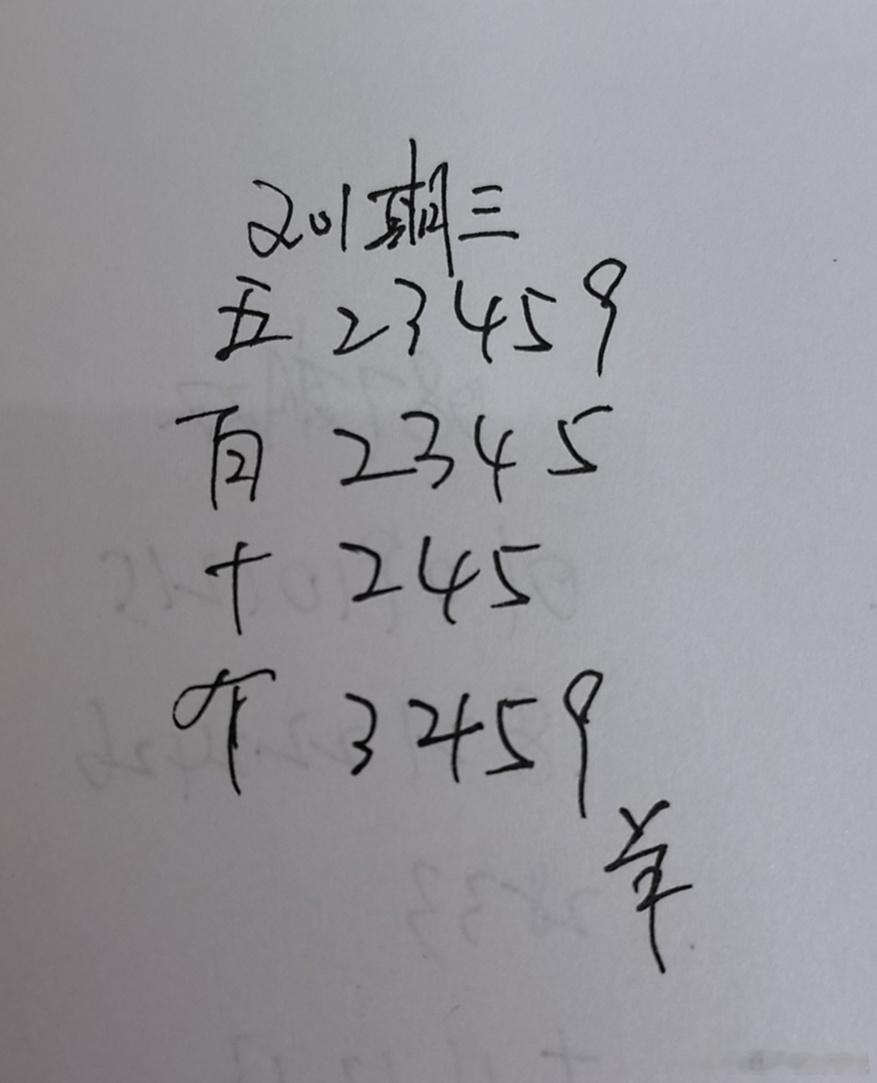 201期三
五 23459
百 2345
十 245
个 3459